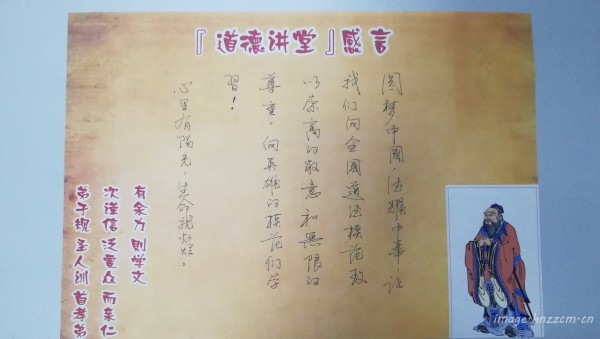 『道德讲堂』感言
圆梦中國，德耀中華，让
我们向全國道德模范致
以崇高的敬意和無限的
尊重，向英雄的模范们学
習！
心里有陽光，生命就燦爛。
弟子规 圣人训 首孝弟
次谨信 泛爱众 而亲仁
有余力 则学文
image.hnzzcm.cn